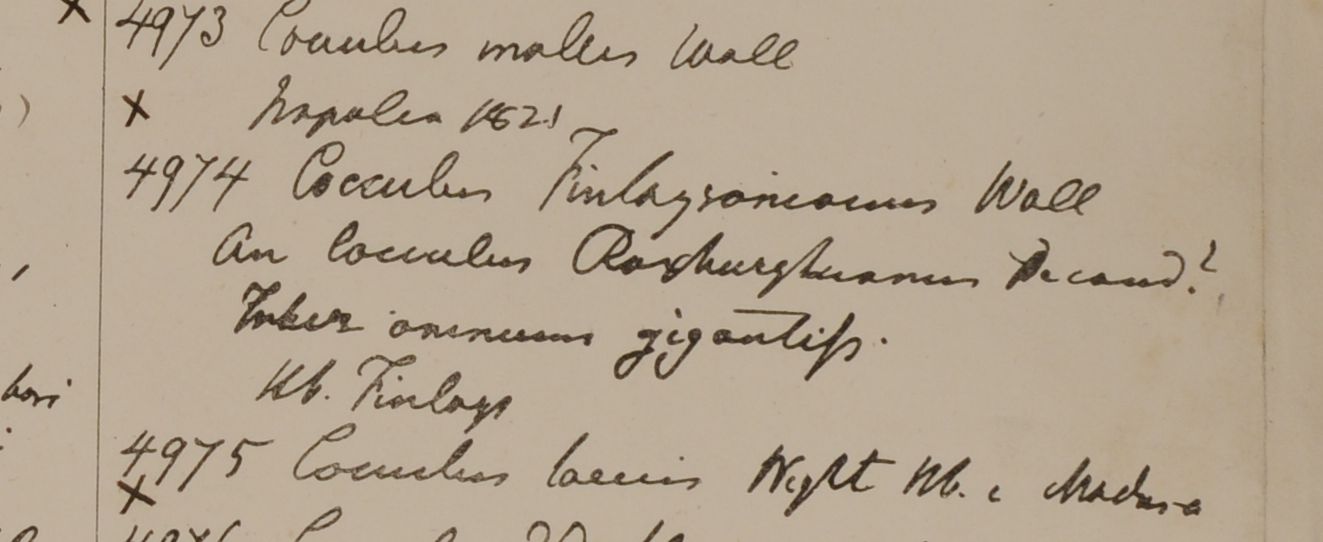 4973 Cocculus mollis Wall
x Napalia 1821
4974 Cocculus Finlaysonianus Wall
An Cocculus Roxburghianus Decand?
Inter omnium gigantiss.
Hb. Finlays
4975 Cocculus laevis Wight Hb. e Madura
x